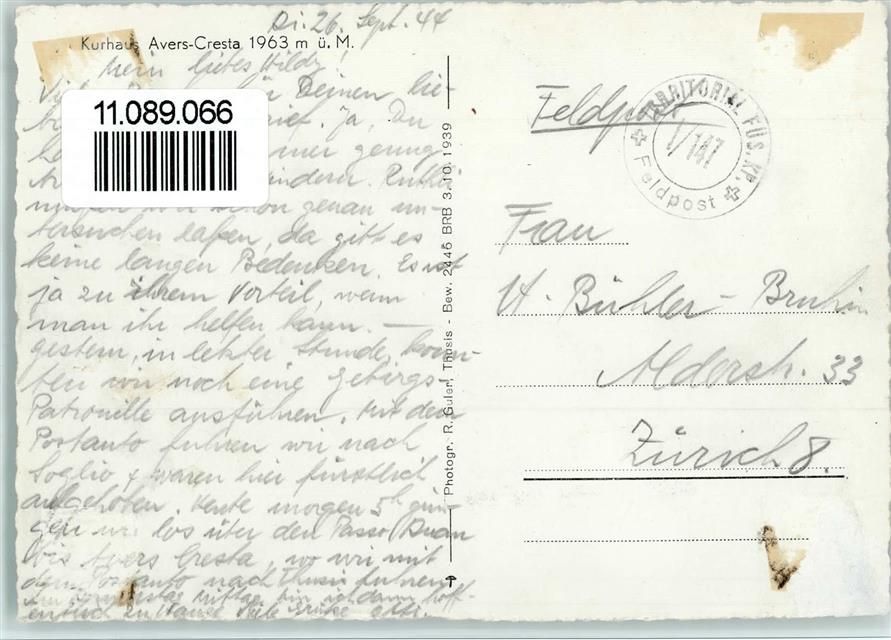 Di. 26. Sept. 44
Kurhaus Avers-Cresta 1963 m ü. M.
Mein liebes Hildy!
Deinen lie-
11.089.066
Ja, Du
immer genug
Kindern. Ruthli
schon genau un-
tersuchen laßen, da gibt es
keine langen Bedenken. Es ist
ja zu ihrem Vorteil, wenn
man ihr helfen kann. —
gestern, in letzter Stunde, konn-
ten wir noch eine gebirgs-
Patrouille ausführen. Mit dem
Postauto fuhren wir nach
Soglio & waren hier fürstlich
aufgehoben. Heute morgen 5h gin-
gen wir los über den Passo Duan
bis Avers Cresta, wo wir mit
dem Postauto nach Thusis fuhren.
Am Donnerstag Mittag bin ich dann hoff-
entlich zu Hause. Viele Grüße
Photogr. R. Guler, Thusis - Bew. 2446 BRB 3. 10. 1939
Feldpost
TERRITORIAL FÜS. KP.
I/147
Feldpost
Frau
H. Bühler-Bruhin
Alderstr. 33
Zürich 8.